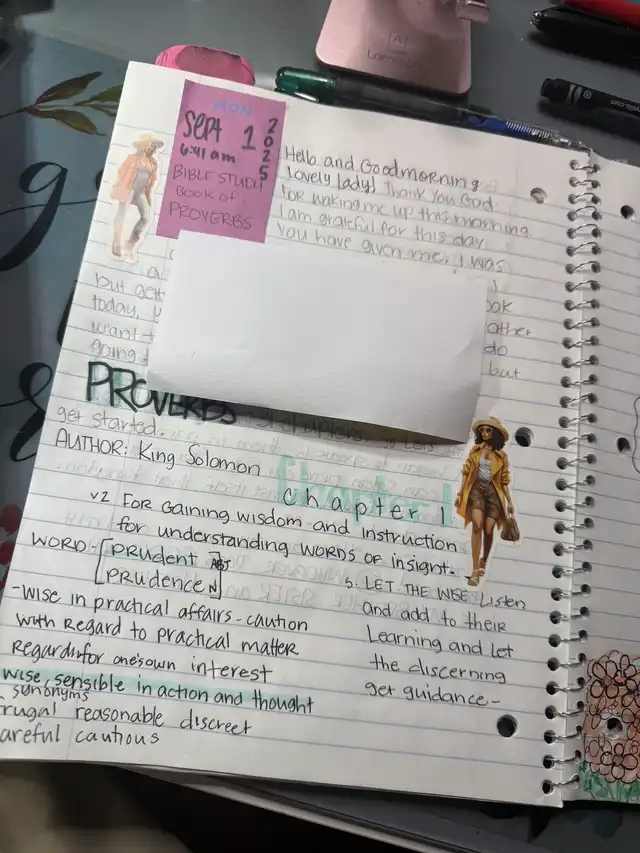 MON
SEPT 1 2025
6:41 am
BIBLE STUDY
BOOK OF
PROVERBS
Hello and Goodmorning
lovely lady! Thank You God
for waking me up this morning
I am grateful for this day
You have given me. I was
but
today,
other
want
do
going
but
PROVERBS
get started.
AUTHOR: King Solomon
Chapter 1
v2 FOR GAINING WISDOM AND INSTRUCTION
for understanding WORDS OF INSIGHT.
WORD- [PRUDENT] ADJ
[PRUDENCE] N
-WISE IN PRACTICAL AFFAIRS - CAUTION
WITH REGARD TO PRACTICAL MATTER
Regard for one's own interest
WISE, SENSIBLE IN ACTION AND THOUGHT
synonyms
rugal reasonable discreet
areful cautious
5. LET THE WISE Listen
And add to their
Learning and let
the discerning
get guidance-